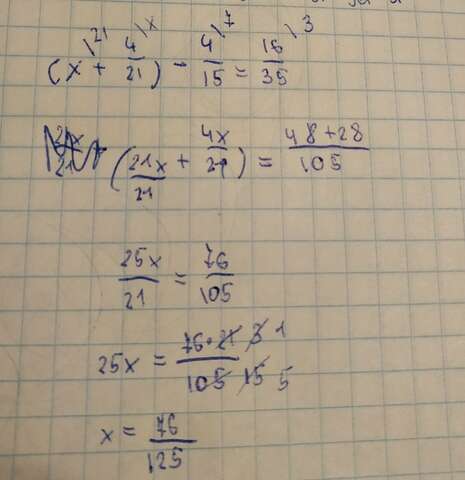 \21 \x \7 \3
(x + 4/21) - 4/15 = 16/35
(21x/21 + 4x/21) = 48+28/105
25x/21 = 76/105
25x = 76·21 3 1/105 15 5
x = 76/125